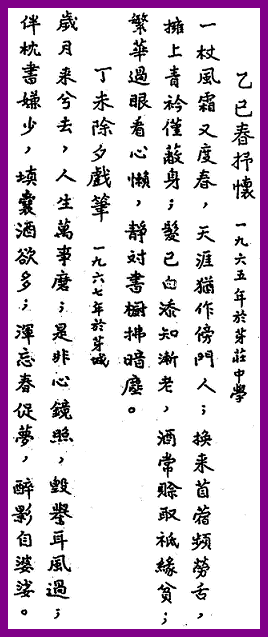 乙巳春抒懷 一九六五年於芽莊中學
一杖風霜又度春，天涯猶作傍門人；換来苜蓿頻勞舌，
擁上青衿僅蔽身；髮已白添知漸老，酒常賒取祗緣貧；
繁華過眼看心懶，靜對書櫥拂暗塵。
丁未除夕戲筆 一九六七年於芽城
歲月来兮去，人生萬事磨；是非心鏡照，毀譽耳風過；
伴枕書嫌少，填囊酒欲多；渾忘春促夢，醉影自婆娑。